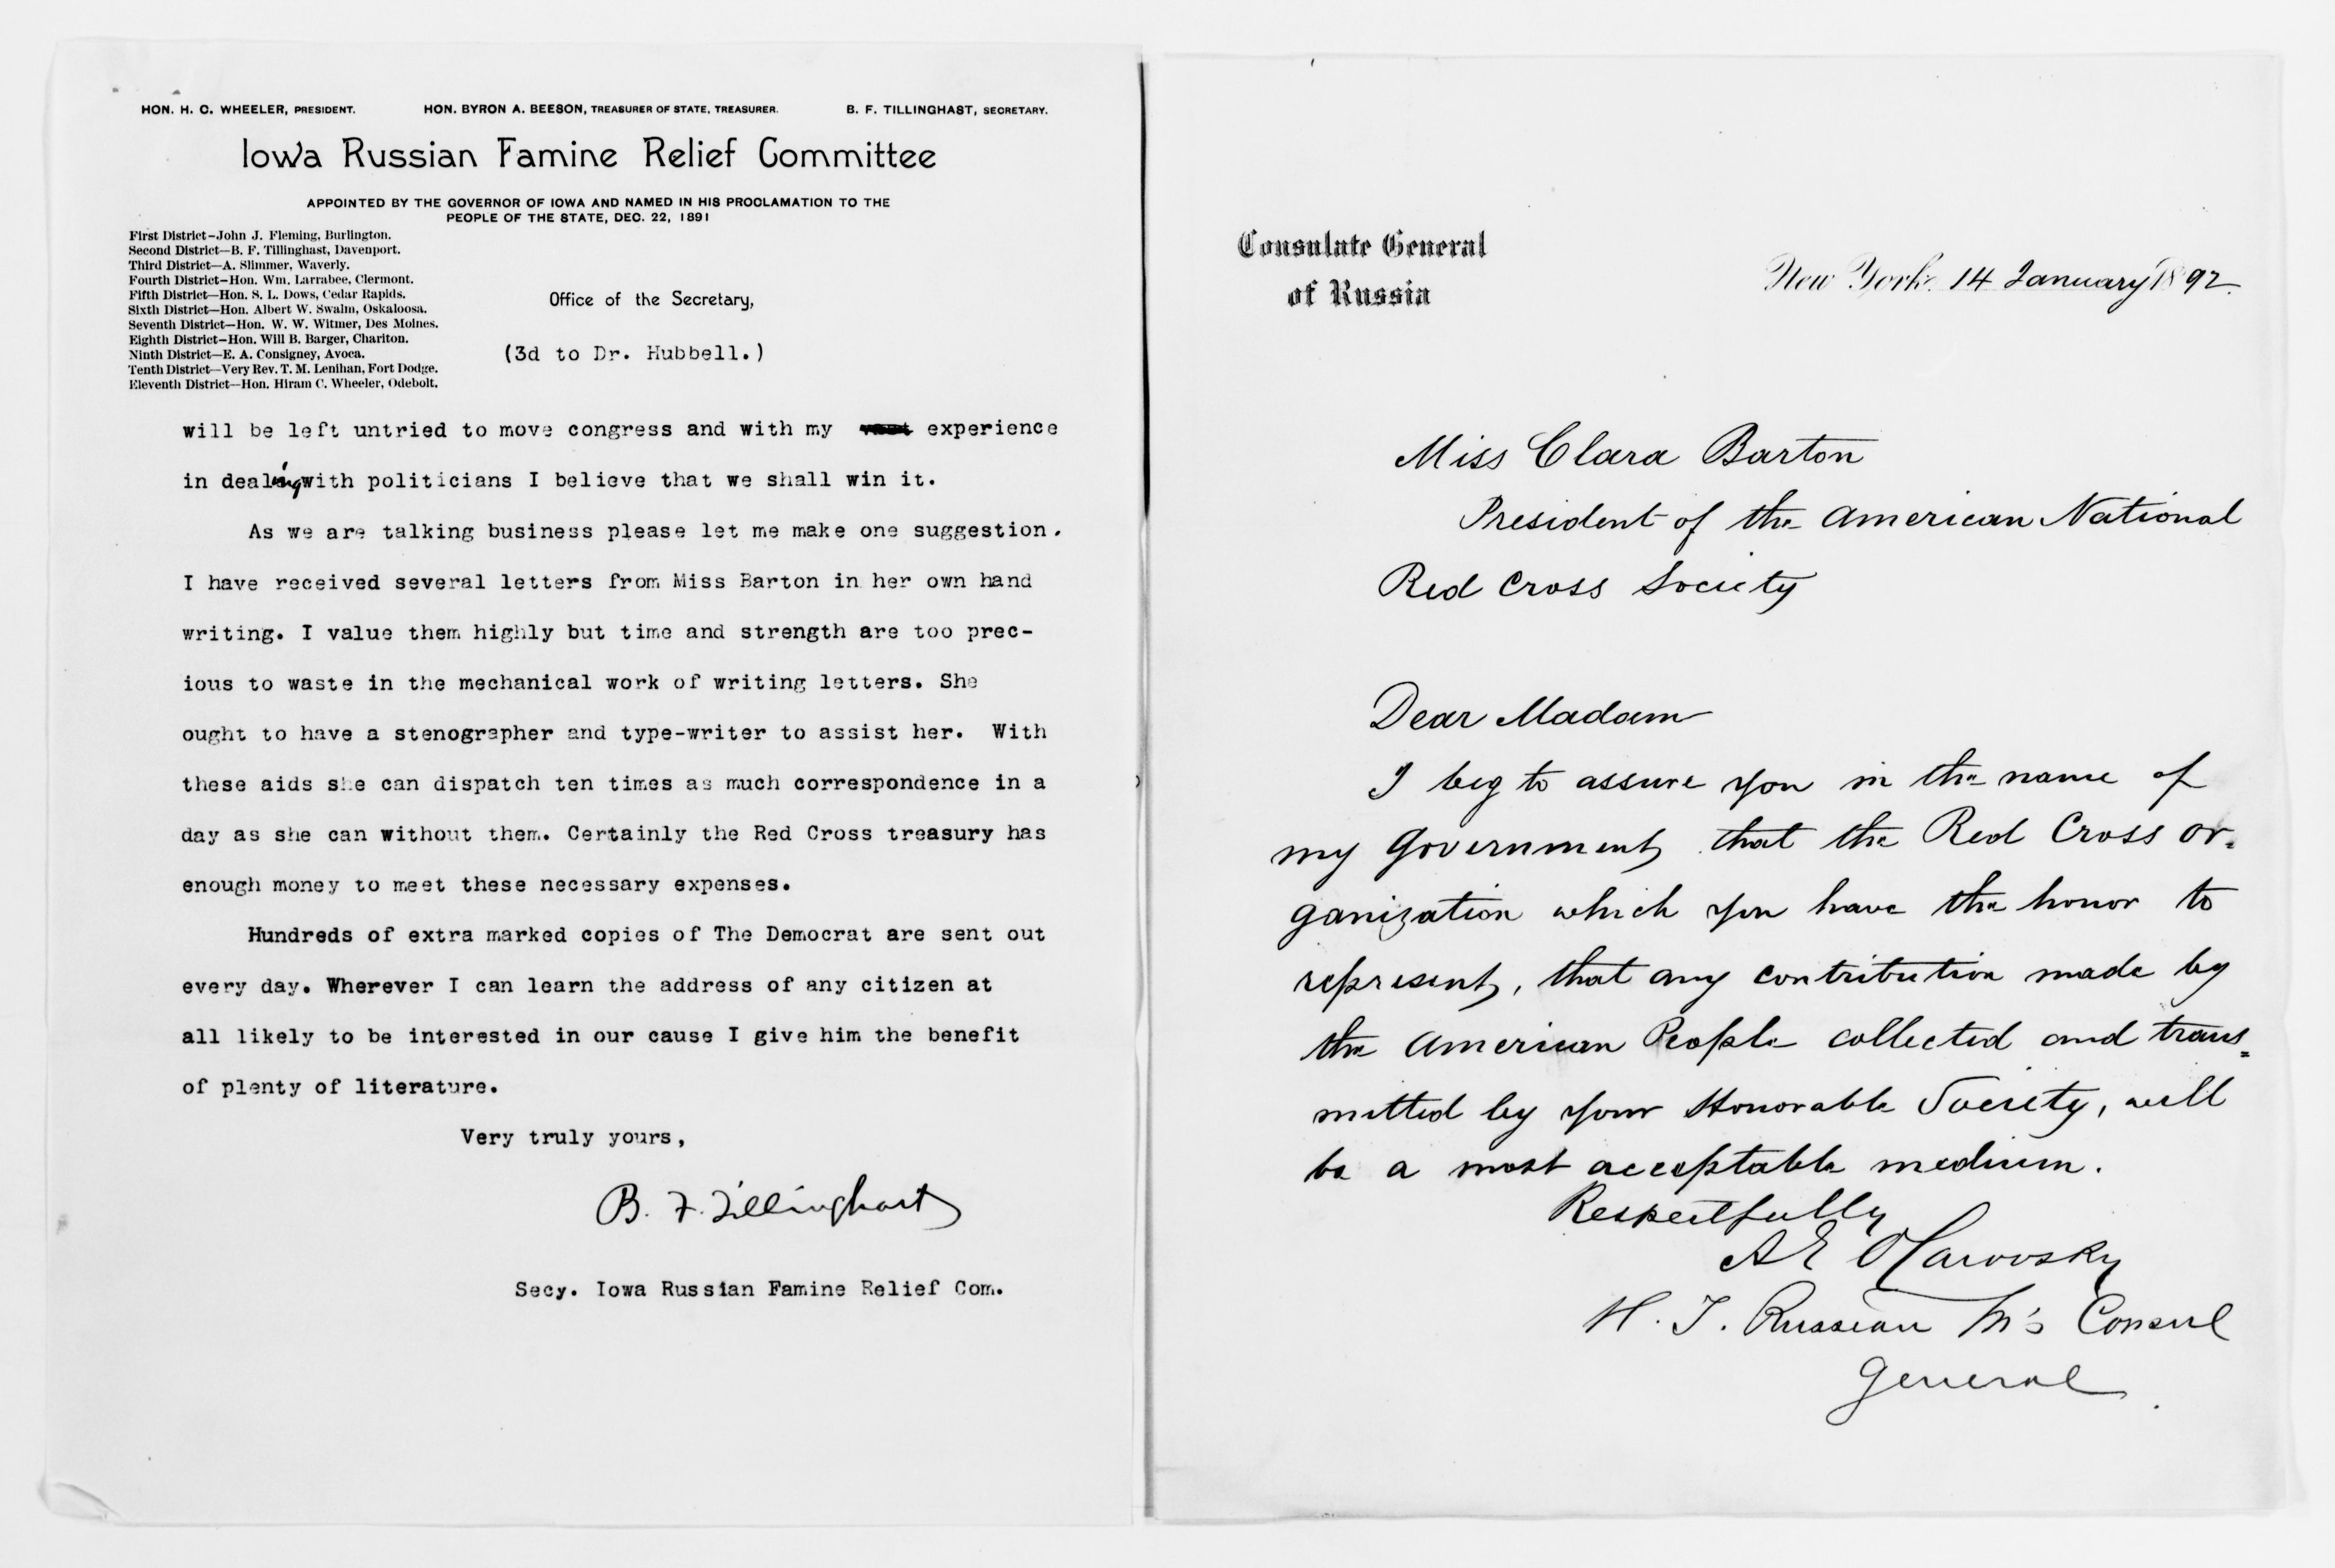 HON. H. C. WHEELER, PRESIDENT. HON. BYRON A. BEESON, TREASURER OF STATE, TREASURER. B. F. TILLINGHAST, SECRETARY.
Iowa Russian Famine Relief Committee
APPOINTED BY THE GOVERNOR OF IOWA AND NAMED IN HIS PROCLAMATION TO THE
PEOPLE OF THE STATE, DEC. 22, 1891
First District—John J. Fleming, Burlington.
Second District—B. F. Tillinghast, Davenport.
Third District—A. Slimmer, Waverly.
Fourth District—Hon. Wm. Larrabee, Clermont.
Fifth District—Hon. S. L. Dows, Cedar Rapids.
Sixth District—Hon. Albert W. Swalm, Oskaloosa.
Seventh District—Hon. W. W. Witmer, Des Moines.
Eighth District—Hon. Will B. Barger, Chariton.
Ninth District—E. A. Consigney, Avoca.
Tenth District—Very Rev. T. M. Lenihan, Fort Dodge.
Eleventh District—Hon. Hiram C. Wheeler, Odebolt.
Office of the Secretary,
(3d to Dr. Hubbell.)
will be left untried to move congress and with my experience
in dealing with politicians I believe that we shall win it.
As we are talking business please let me make one suggestion.
I have received several letters from Miss Barton in her own hand
writing. I value them highly but time and strength are too prec-
ious to waste in the mechanical work of writing letters. She
ought to have a stenographer and type-writer to assist her. With
these aids she can dispatch ten times as much correspondence in a
day as she can without them. Certainly the Red Cross treasury has
enough money to meet these necessary expenses.
Hundreds of extra marked copies of The Democrat are sent out
every day. Wherever I can learn the address of any citizen at
all likely to be interested in our cause I give him the benefit
of plenty of literature.
Very truly yours,
B. F. Tillinghast
Secy. Iowa Russian Famine Relief Com.
Consulate General
of Russia
New York. 14 January 1892.
Miss Clara Barton
President of the American National
Red Cross Society
Dear Madam
I beg to assure you in the name of
my Government, that the Red Cross or-
ganization which you have the honor to
represent, that any contribution made by
the American People collected and trans=
mitted by your Honorable Society, will
be a most acceptable medium.
Respectfully
A E Olarovsky
H. I. Russian M's Consul
General